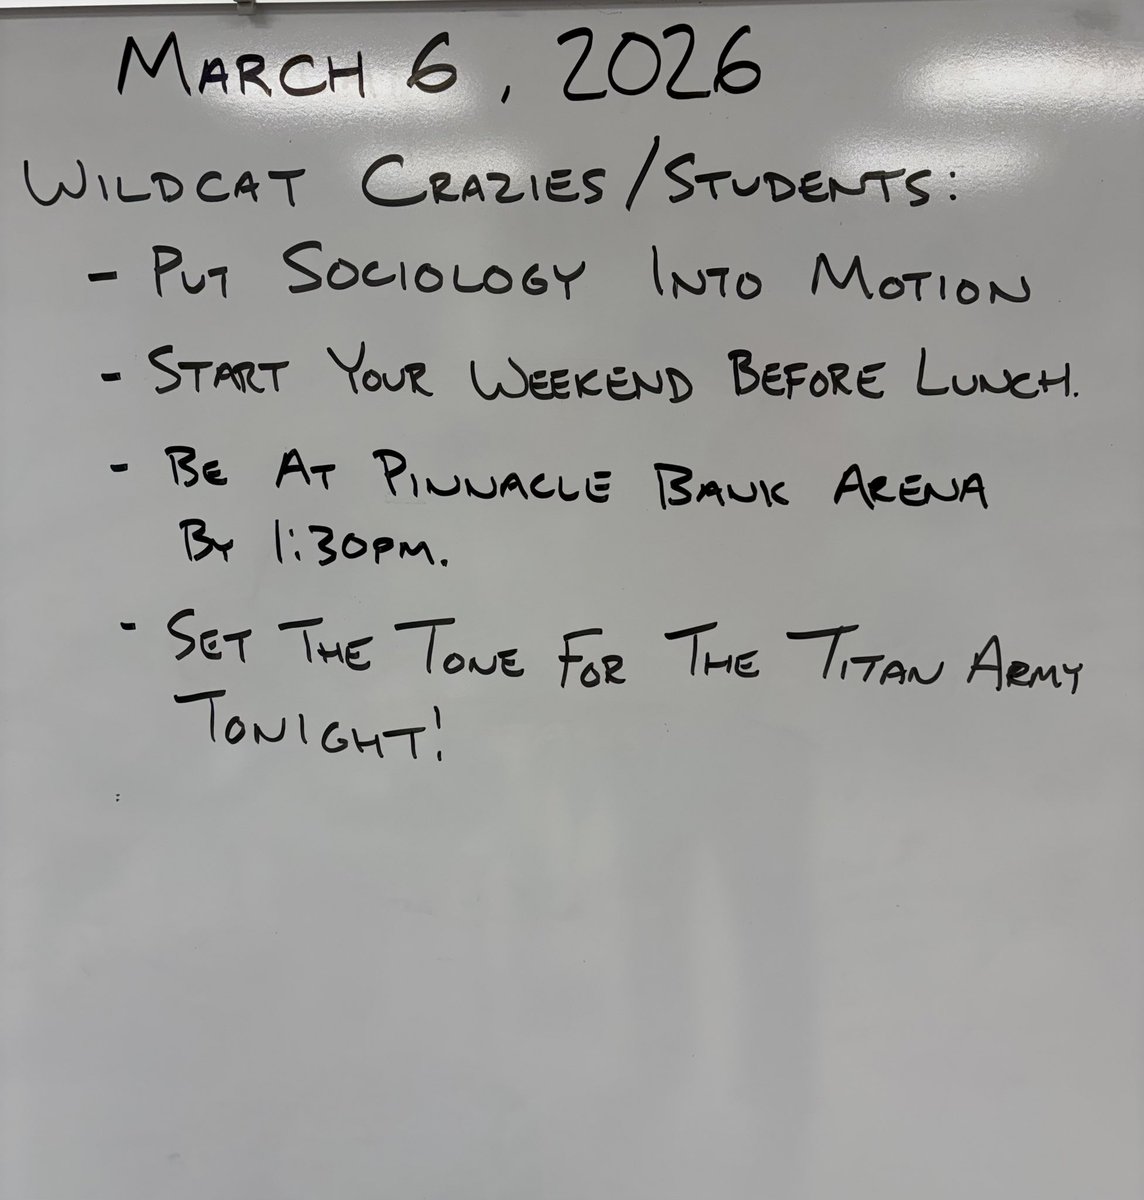 MARCH 6, 2026
WILDCAT CRAZIES/STUDENTS:
- PUT SOCIOLOGY INTO MOTION
- START YOUR WEEKEND BEFORE LUNCH.
- BE AT PINNACLE BANK ARENA
BY 1:30PM.
- SET THE TONE FOR THE TITAN ARMY
TONIGHT!